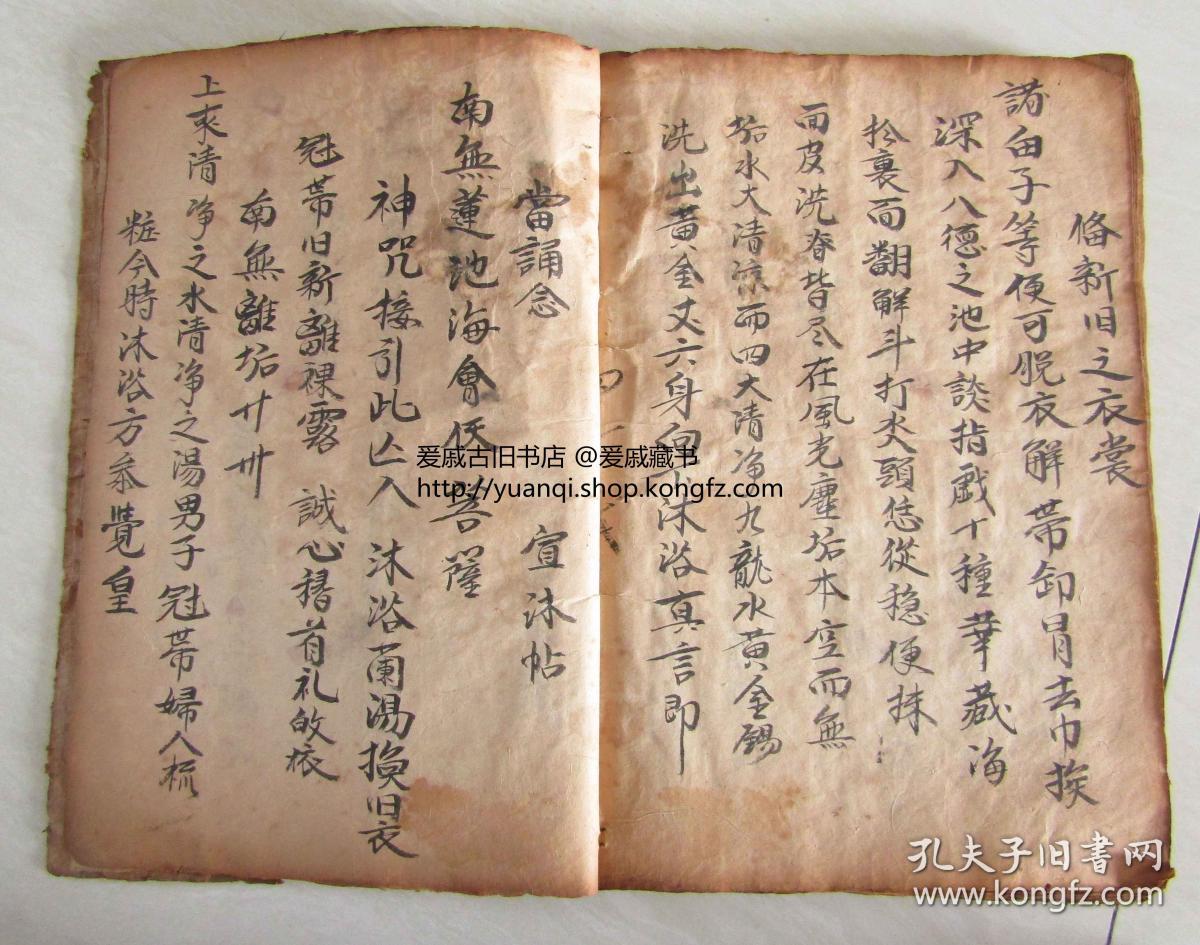 俻新旧之衣裳
諸由子等便可脱衣解帯卸冐去巾挨
深入八德之池中談指戲十種華藏海
拎裏面翻解斗打水頭恁從穏便抹
面皮洗脊背尽在風光塵垢本空而無
垢水大清凉而四大清净九龍水黄金錫
洗出黄金丈六身向我沐浴真言即
當誦念 宣沐帖
南無蓮池海會仸菩薩
神咒接引此亾入 沐浴蘭湯換旧衣
冠帯旧新離裸露 誠心稽首礼皈依
南無離垢廾卅
上来清净之水清净之湯男子冠帯婦人梳
粧今時沐浴方叅覺皇
爱戚古旧书店 @爱戚藏书
http://yuanqi.shop.kongfz.com
孔夫子旧书网
www.kongfz.com